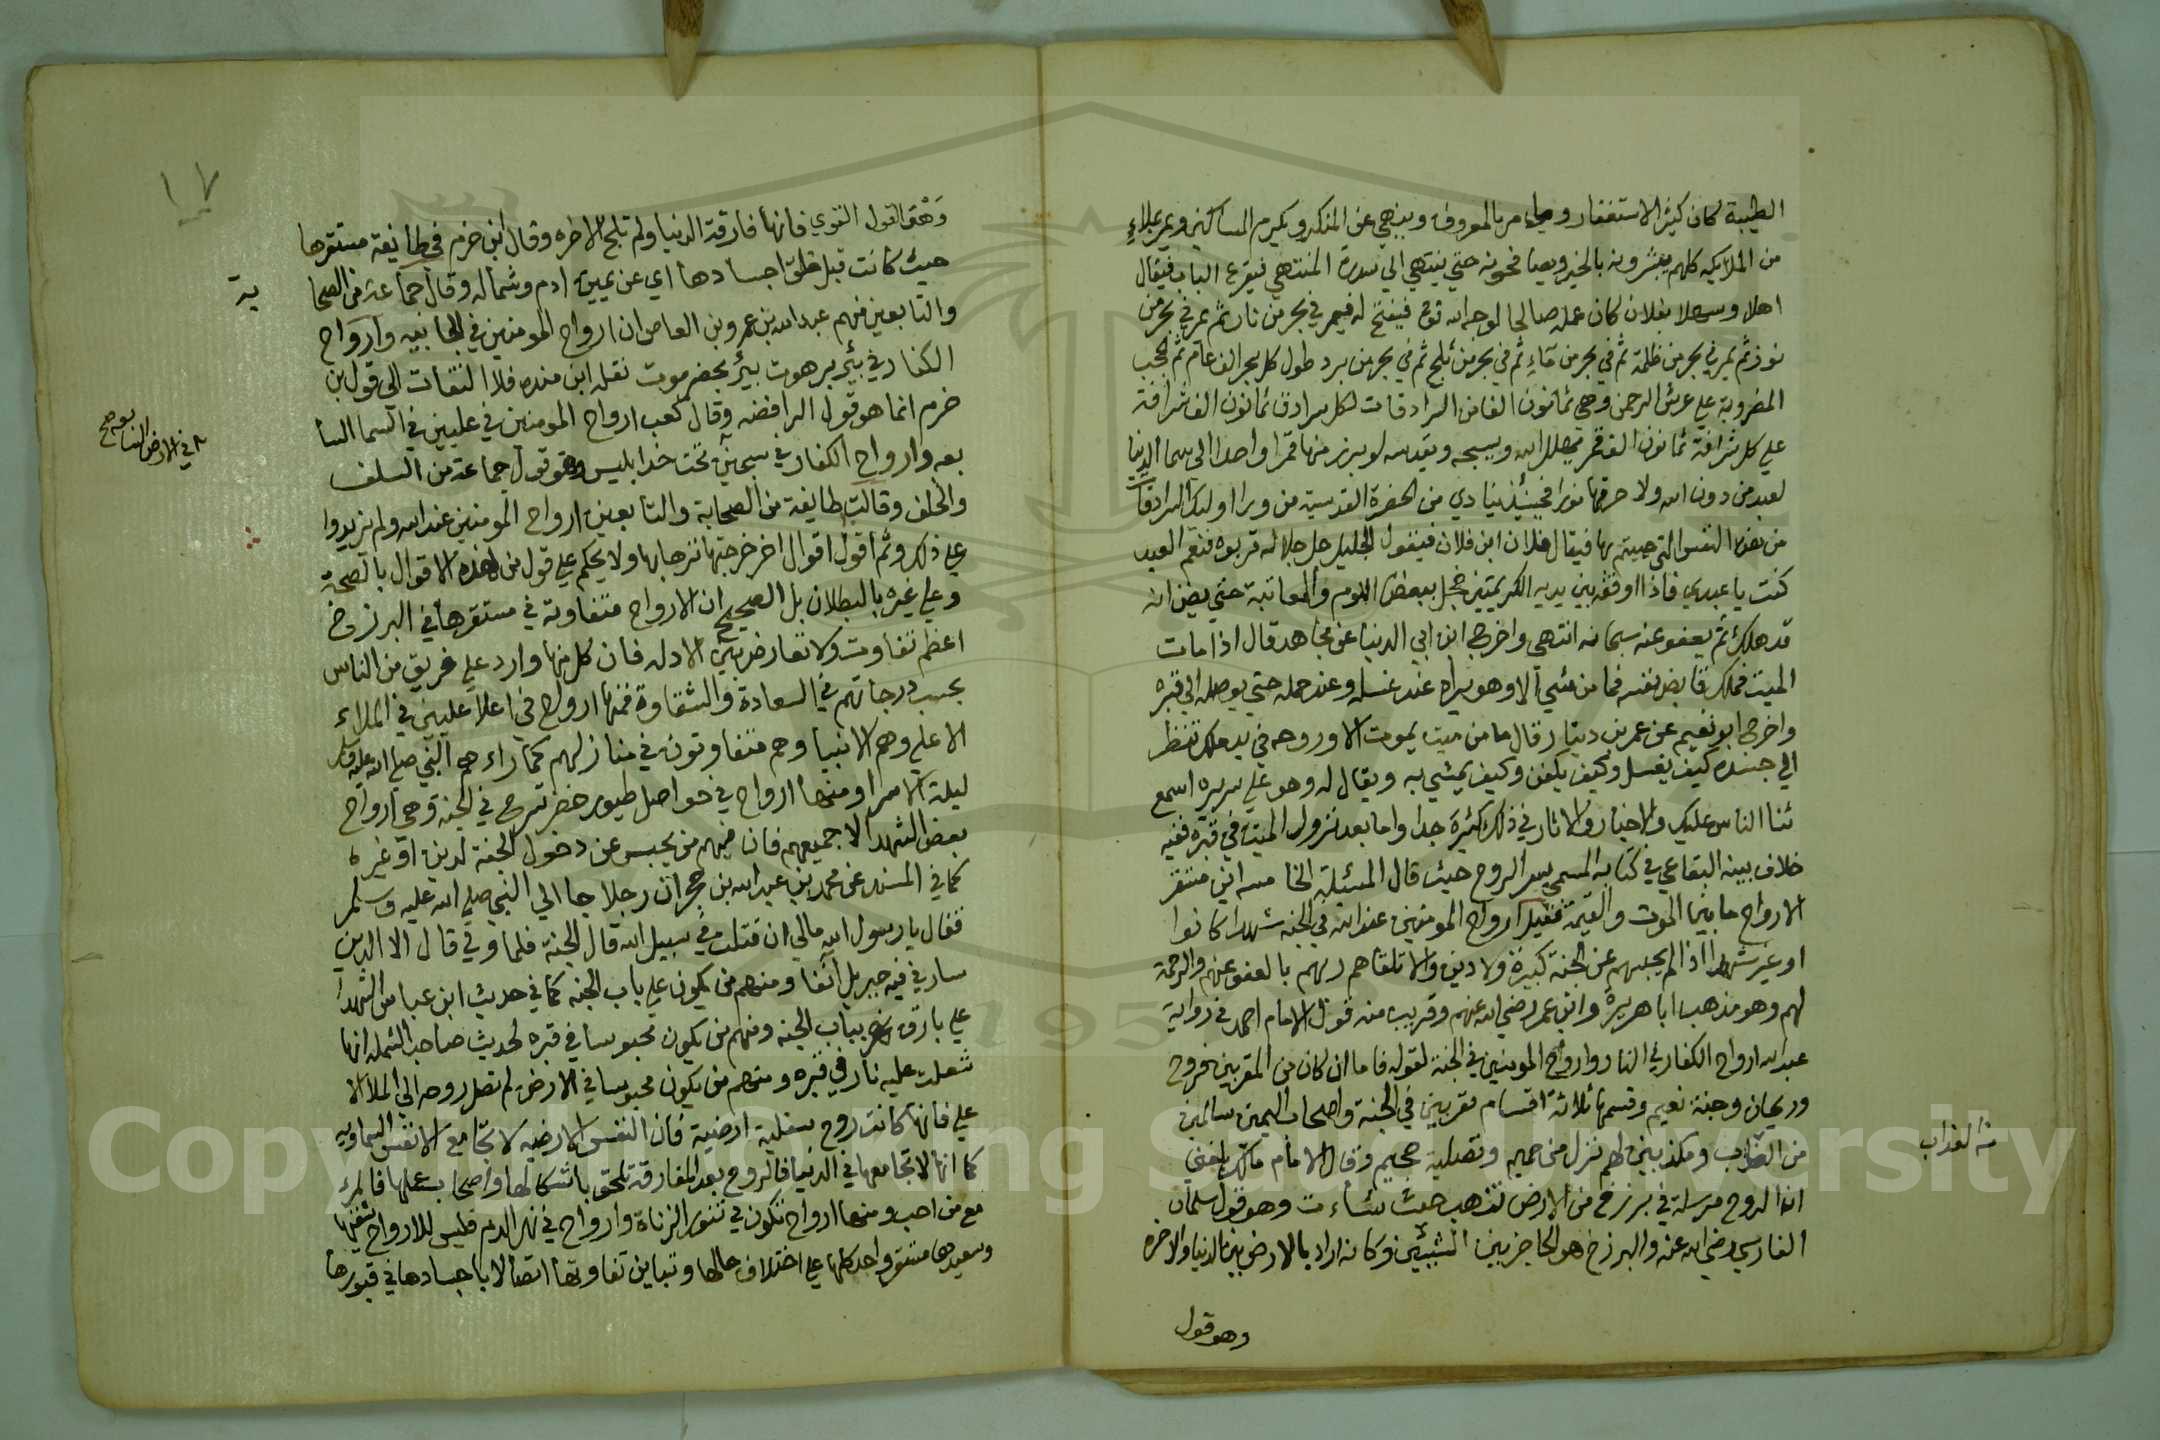 الطيبة كان كثير الاستغفار ويامر بالمعروف وينهي عن المنكر ويكرم المساكين ويمر بملاء
من الملايكه كلهم يبشرونه بالخير ويصافحونه حتي ينتهي الي سدرة المنتهي فيقرع الباب فيقال
اهلا وسهلا بفلان كان عمله صالحا لوجه الله تع فيفتح له فيمر في بحر من نار ثم يمر في بحر من
نور ثم يمر في بحر من ظلمة ثم في بحر من ماء ثم في بحر من ثلج ثم في بحر من برد طول كل بحر الف عام ثم الحجب
المضروبة علي عرش الرحمن وهي ثمانون الفا من السرادقات لكل سرادق ثمانون الف شرافة
علي كل شرافة ثمانون الف قمر يهلل الله ويسبحه ويقدسه لو برز منها قمرا واحدا الي سما الدنيا
لعبد من دون الله ولاحرقها نورا فحينئذ ينادي من الحضرة القدسية من ورا اولئك السرادقات
من هذه النفس التي جيتم بها فيقال فلان ابن فلان فيقول الجليل جل جلاله قربوه فنعم العبد
كنت يا عبدي فاذا اوقفه بين يديه الكريمتين خجل ببعض اللوم والمعاتبة حتي يظن انه
قد هلك ثم يعفو عنه سبحانه انتهي واخرج ابن ابي الدنيا عن مجاهد قال اذا مات
الميت فملك قابض نفسه فما من شي الا وهو يراه عند غسله وعند حمله حتي يوصله الي قبره
واخرج ابو نعيم عن عمر بن دينار قال ما من ميت يموت الا وروحه في يد ملك تنظر
الي جسده كيف يغسل وكيف يكفن وكيف يمشي به ويقال له وهو علي سريره اسمع
ثنا الناس عليك والاخبار والاثار في ذلك كثيرة جدا واما بعد نزول الميت في قبره ففيه
خلاف بينه البقاعي في كتابه المسمي بسر الروح حيث قال المسئلة الخامسه اين مستقر
الارواح ما بين الموت والقيمة فقيل ارواح المومنين عند الله في الجنه شهدا كانوا
او غير شهدا اذا لم يحبسهم عن الجنة كبيرة ولا دين والا تلقاهم ربهم بالعفو عنهم والرحمة
لهم وهو مذهب ابا هريرة وابن عمر رضي الله عنهم وقريب منه قول الامام احمد في رواية
عبد الله ارواح الكفار في النار وارواح المومنين في الجنة لقوله فاما ان كان من المقربين فروح
وريحان وجنة نعيم وقسمها ثلاثة اقسام مقربين في الجنة واصحاب اليمين سالمين
من العذاب ومكذبين لهم نزل من حميم وتصلية جحيم وقال الامام مالك بلغني
ان الروح مرسلة في برزخ من الارض تذهب حيث شاءت وهو قول سلمان
الفارسي رضي الله عنه والبرزخ هو الحاجز بين الشيئين وكانه اراد بالارض بين الدنيا والاخرة
من العذاب
وهو قول
١٧
وهو القول القوي فانها فارقة الدنيا ولم تلج الاخره وقال ابن حزم في طايفة مستقرها
حيث كانت قبل خلق اجسادها اي عن يمين ادم وشماله وقال جماعة من الصحا
بة
والتابعين منهم عبد الله بن عمرو بن العاص ان ارواح المومنين في الجابيه وارواح
الكفار في بئر برهوت بير بحضرموت نقله ابن منده فلا التفات الي قول بن
حزم انما هو قول الرافضه وقال كعب ارواح المومنين في عليين في السما السا
بعه وارواح الكفار في سجين تحت خد ابليس وهو قول جماعة من السلف
في الارض السابعه صح
والخلف وقالت طايفة من الصحابة والتابعين ارواح المومنين عند الله ولم يزيدوا
علي ذلك وثم اقول اقوال اخر خرجتها نزحابها ولا يحكم علي قول من هذه الاقوال بالصحة
وعلي غيره بالبطلان بل الصحيح ان الارواح متفاوتة في مستقرها في البرزخ
اعظم تفاوت ولا تعارض بين الادله فان كل منها وارد علي فريق من الناس
بحسب درجاتهم في السعادة والشقاوة فمنها ارواح في اعلا عليين في الملاء
الاعلي وهم الانبيا وهم متفاوتون في منازلهم كما راءهم النبي صلي الله عليه وسلم
ليلة الاسرا ومنها ارواح في حواصل طيور خضر تسرح في الجنة وهي ارواح
بعض الشهدا لا جميعهم فان منهم من يحبس عن دخول الجنة لدين او غيره
كما في المسند عن محمد بن عبد الله بن جحر ان رجلا جا الي النبي صلي الله عليه وسلم
فقال يا رسول الله مالي ان قتلت في سبيل الله قال الجنة فلما ولي قال الا الدين
سارني فيه جبريل آنفا ومنهم من يكون علي باب الجنه كما في حديث ابن عباس الشهدا
علي بارق نهر بباب الجنه ومنهم من يكون محبوسا في قبره لحديث صاحب الشمله انها
شعلت عليه نار في قبره ومنهم من يكون محبوسا في الارض لم تصل روحه الي الملا الا
علي فانها كانت روح سفلية ارضية فان النفس الارضيه لا تجامع الانفس السماويه
كما انها لا تجامعها في الدنيا فالروح بعد المفارقة تلحق باشكالها واصحاب عملها فالمرء
مع من احب ومنها ارواح تكون في تنور الزناة وارواح في نهر الدم فليس للارواح شقيها
وسعيدها مستقر واحد كلها علي اختلاف حالها وتباين تفاوتها اتصالا باجسادها في قبورها
Copyright © King Saud University
195